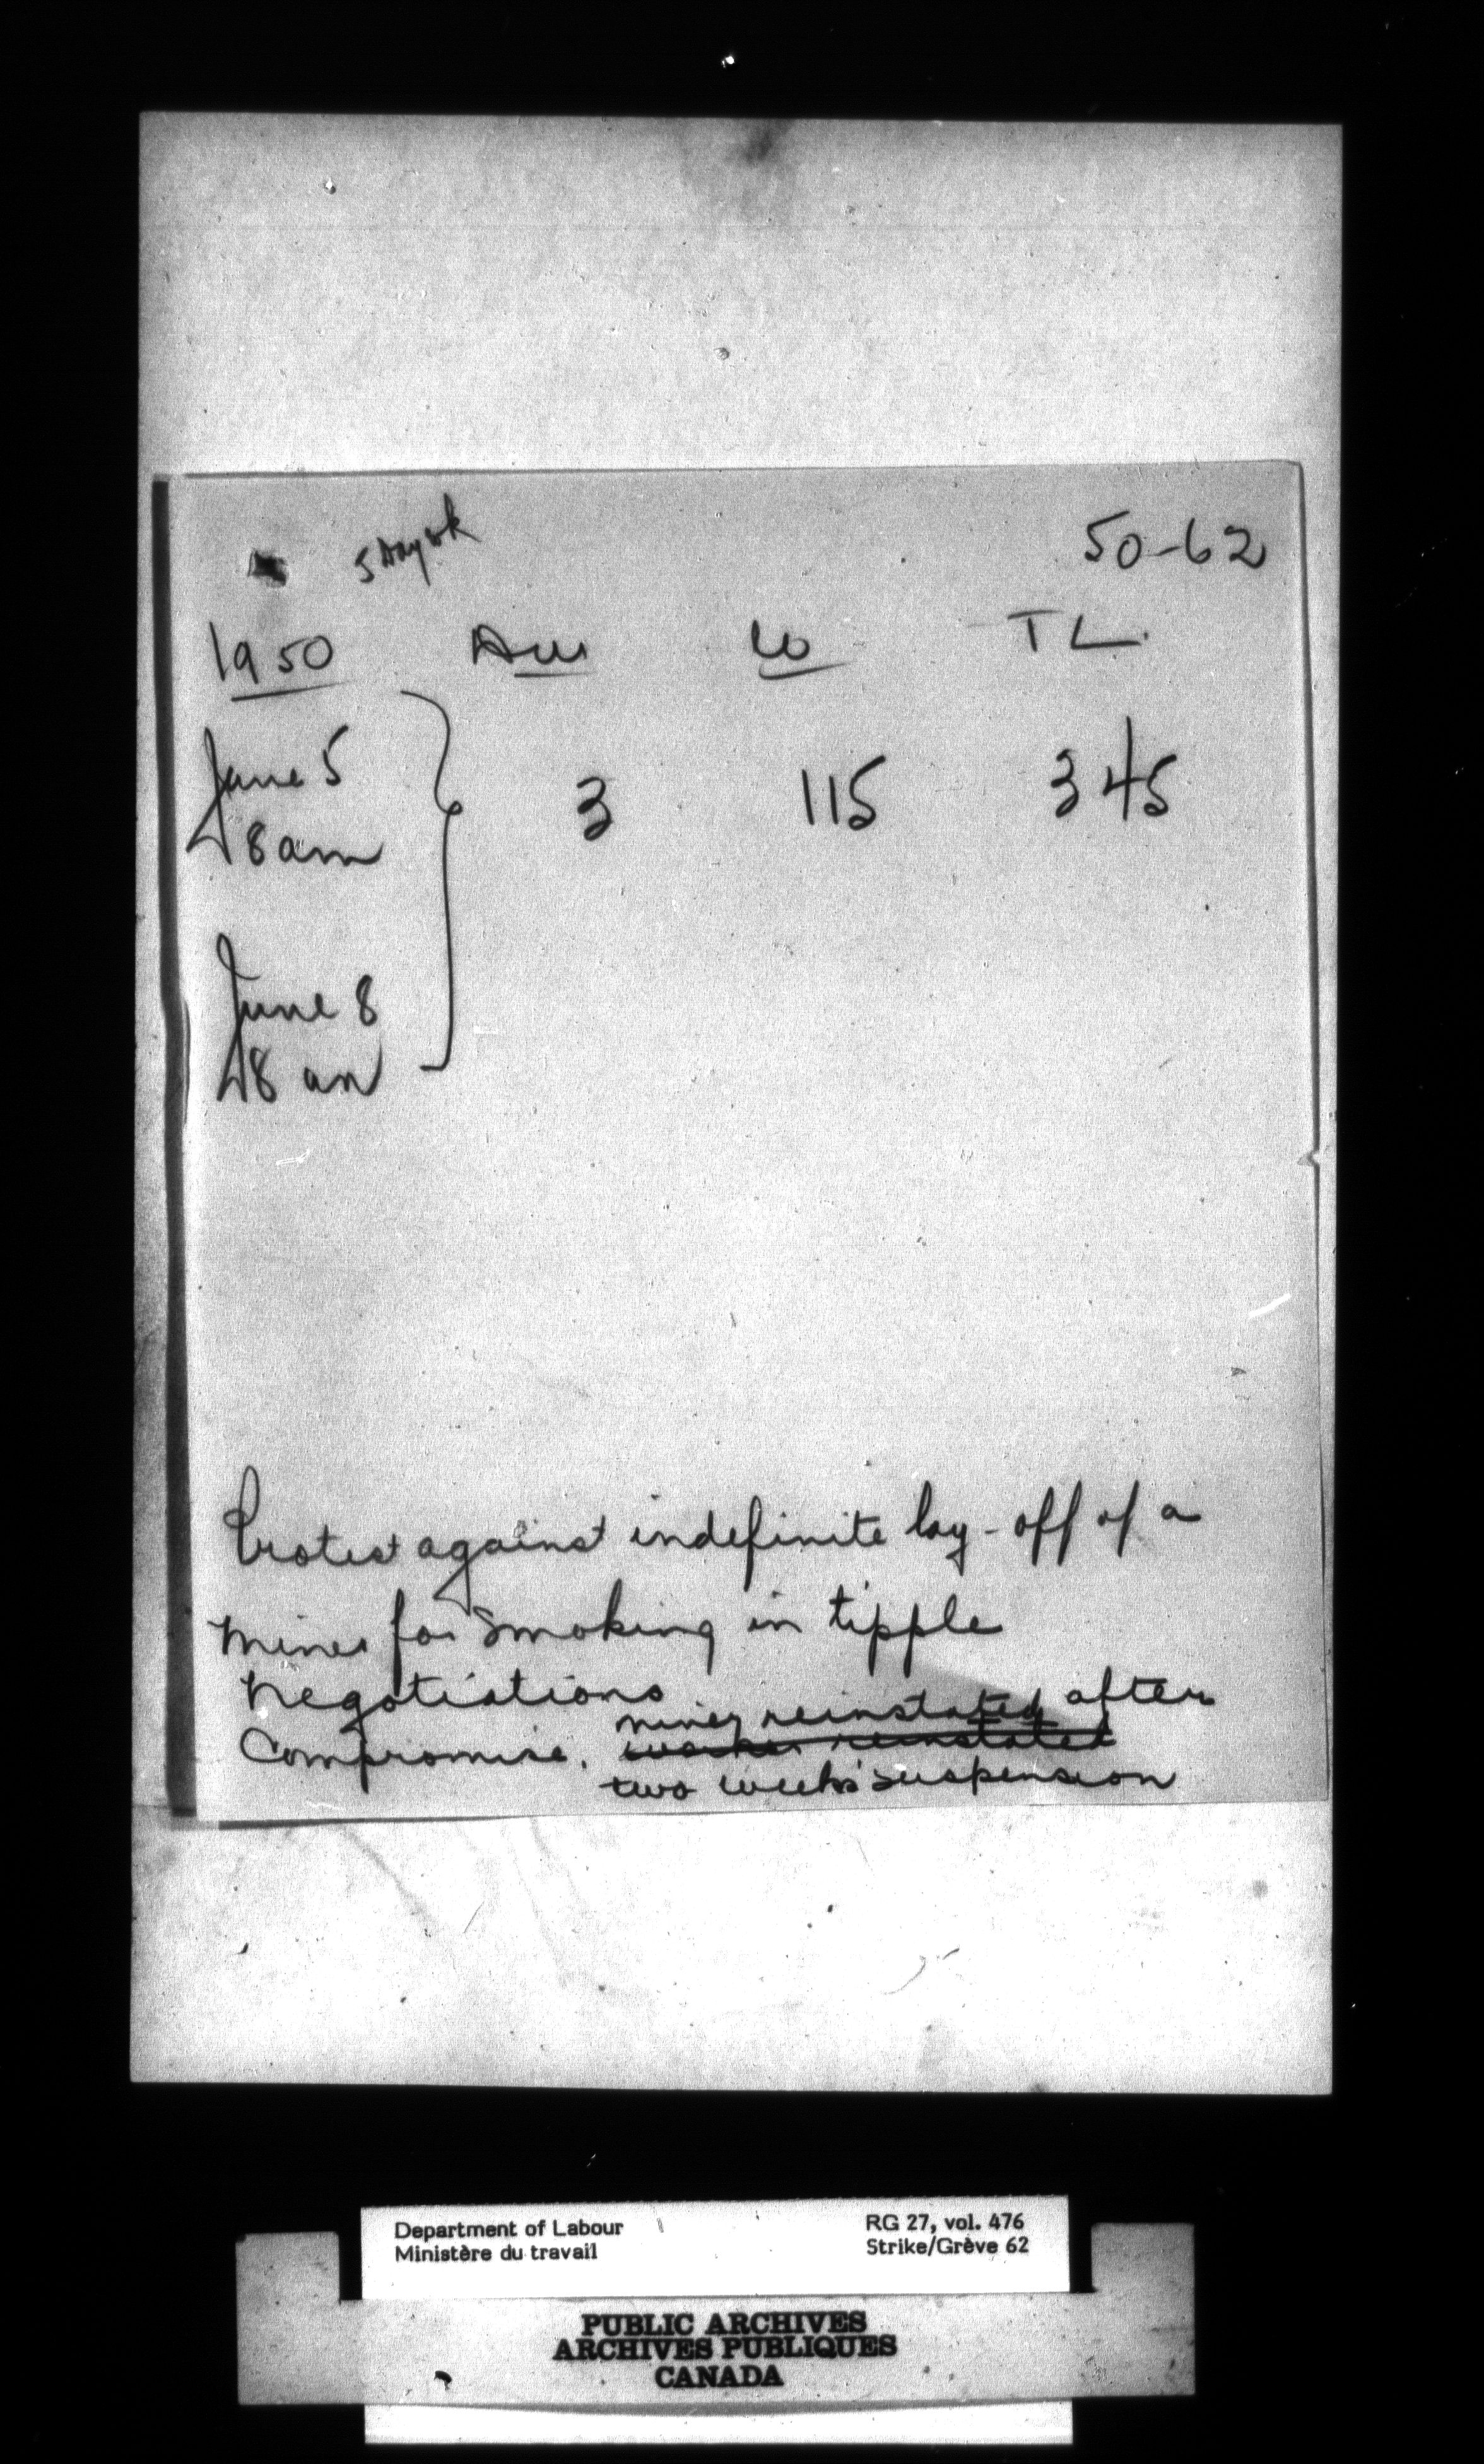 5 day wk
50-62
1950 W TL
June 5
8 am 3 115 345
June 8
8 am
Protest against indefinite lay-off of a
miner for smoking in tipple
Negotiations
miner reinstated after
Compromise. worker reinstated
two weeks' suspension
Department of Labour RG 27, vol. 476
Ministère du travail Strike/Grève 62
PUBLIC ARCHIVES
ARCHIVES PUBLIQUES
CANADA